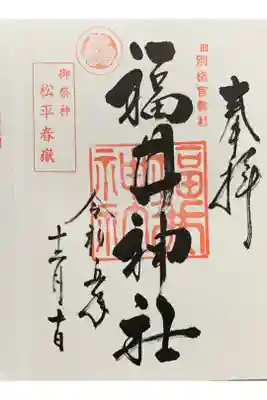 奉拝
旧別格官幣社
福井神社
令和五年
十二月十日
御祭神
松平春嶽